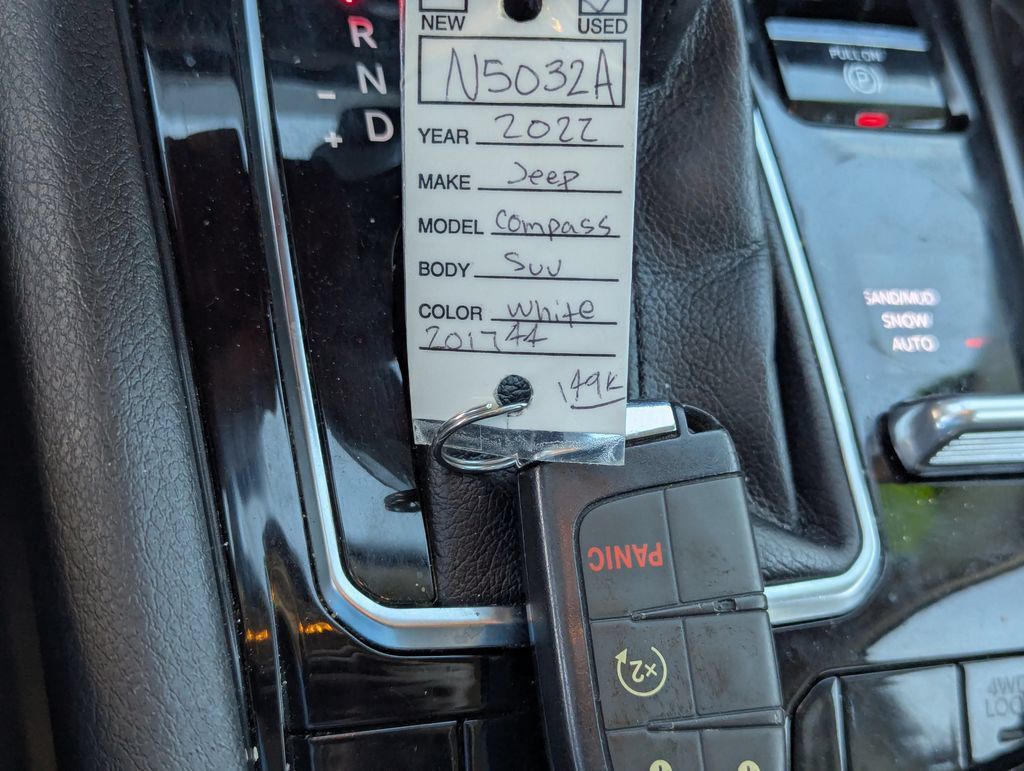 NEW USED
N5032A
YEAR 2022
MAKE Jeep
MODEL Compass
BODY SUV
COLOR White
201744
149K
R
N
D
-
+
PULL ON
P
SAND/MUD
SNOW
AUTO
PANIC
x2
4WD
LOCK